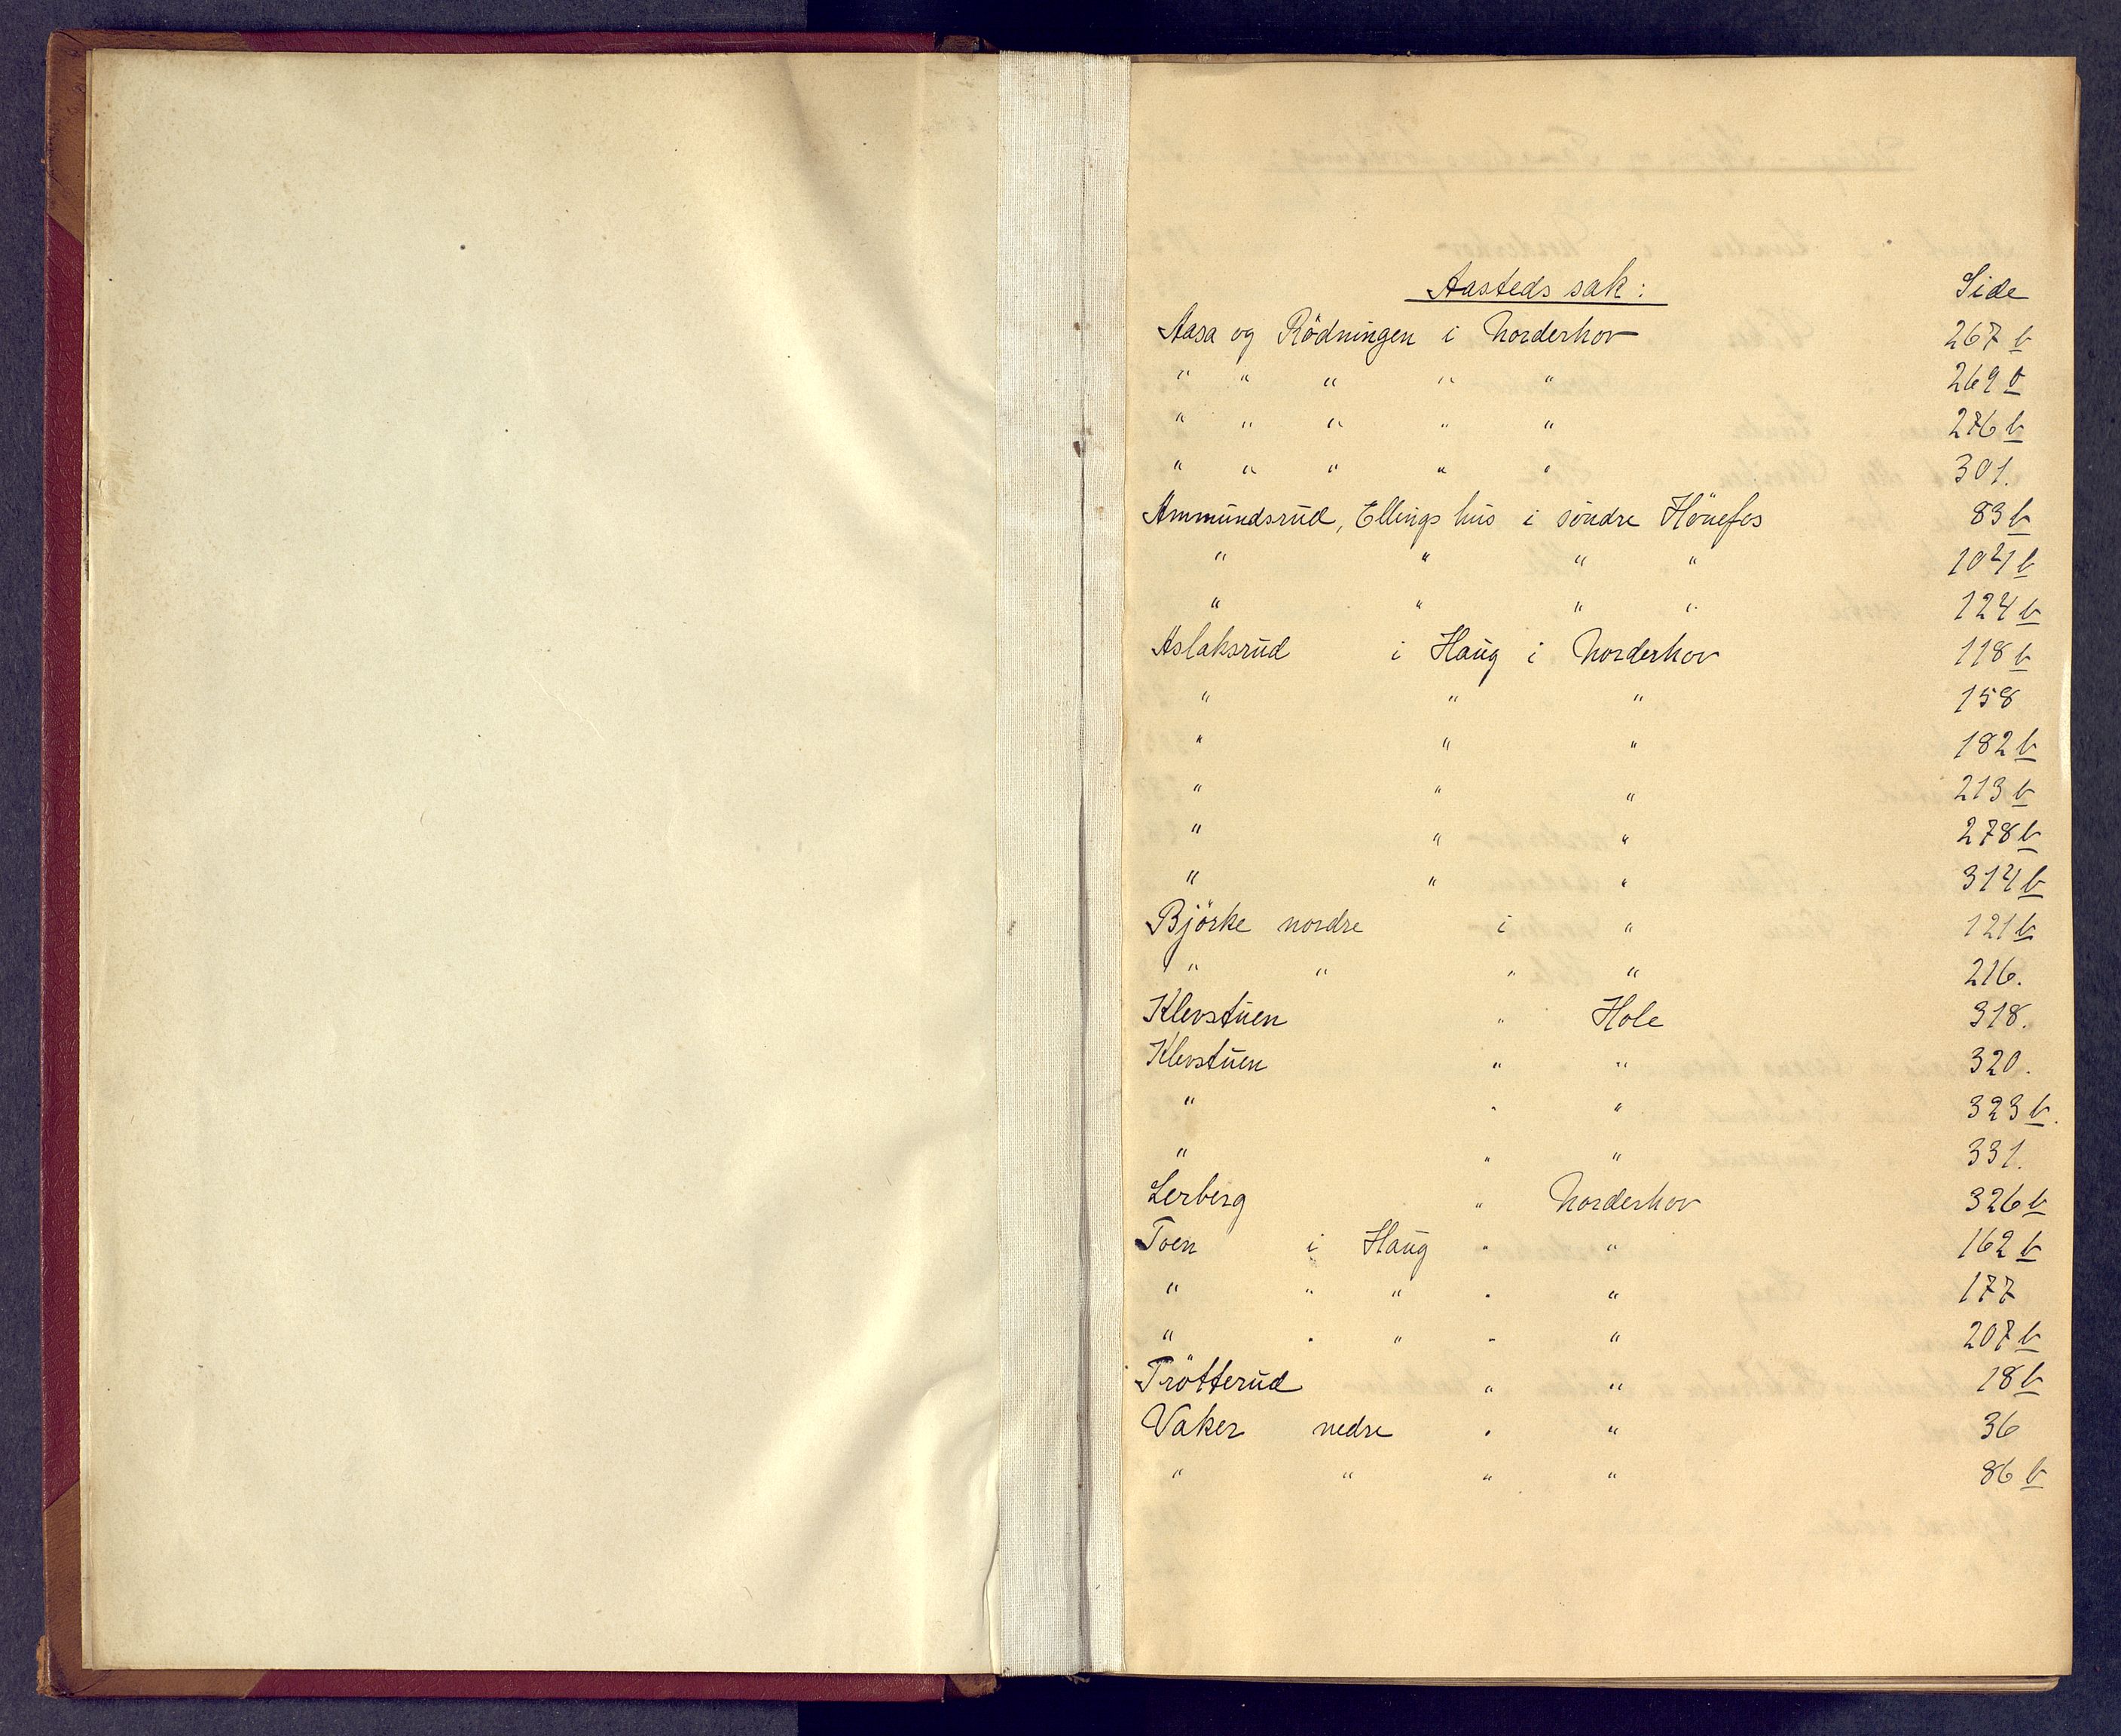 Aasteds sak: Side
Aasa og Rödningen i Norderhov 267 b
" " " " " 269 b
" " " " " 276 b
" " " " " 301.
Ammundsrud, Ellings hus i söndre Hönefos 83 b
" " " " 104 b
" " " " 124 b
Aslaksrud i Haug i Norderhov 118 b
" " " 158
" " " 182 b
" " " 213 b
" " " 278 b
" " " 314 b
Björke nordre i " 121 b
" " " " 216.
Klevstuen " Hole 318.
Klevstuen " " 320.
" " " 323 b.
" " " 331.
Lerberg " Norderhov 326 b
Toen i Haug " " 162 b
" " " " " 177
" " " " " 207 b
Trötterud " " 18 b
Vaker nedre " " 36
" " " " 86 b